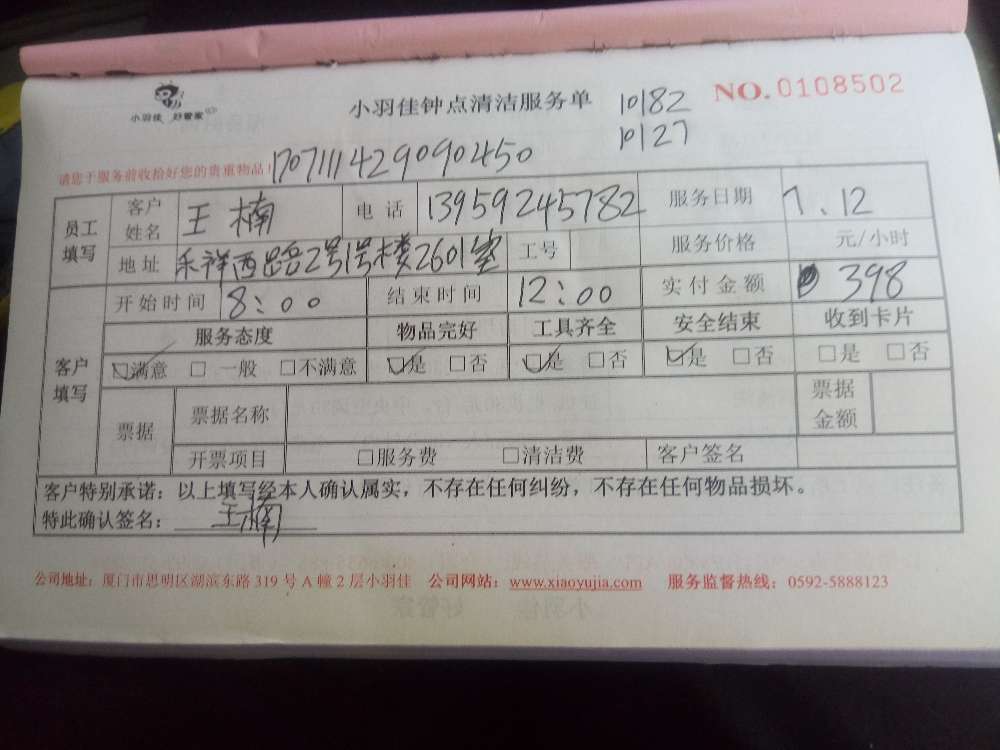 小羽佳 好管家
小羽佳钟点清洁服务单
10182
10127
NO.0108502
请您于服务前收拾好您的贵重物品！
170711142909090450
员工填写 客户姓名 王楠 电话 13959245782 服务日期 7.12
地址 禾祥西路2号1号楼2601室 工号 服务价格 元/小时
客户填写 开始时间 8:00 结束时间 12:00 实付金额 398
服务态度 物品完好 工具齐全 安全结束 收到卡片
☑满意 □一般 □不满意 ☑是 □否 ☑是 □否 ☑是 □否 □是 □否
票据 票据名称 票据金额
开票项目 □服务费 □清洁费 客户签名
客户特别承诺：以上填写经本人确认属实，不存在任何纠纷，不存在任何物品损坏。
特此确认签名：王楠
公司地址：厦门市思明区湖滨东路 319 号 A 幢 2 层小羽佳 公司网站：www.xiaoyujia.com 服务监督热线：0592-5888123